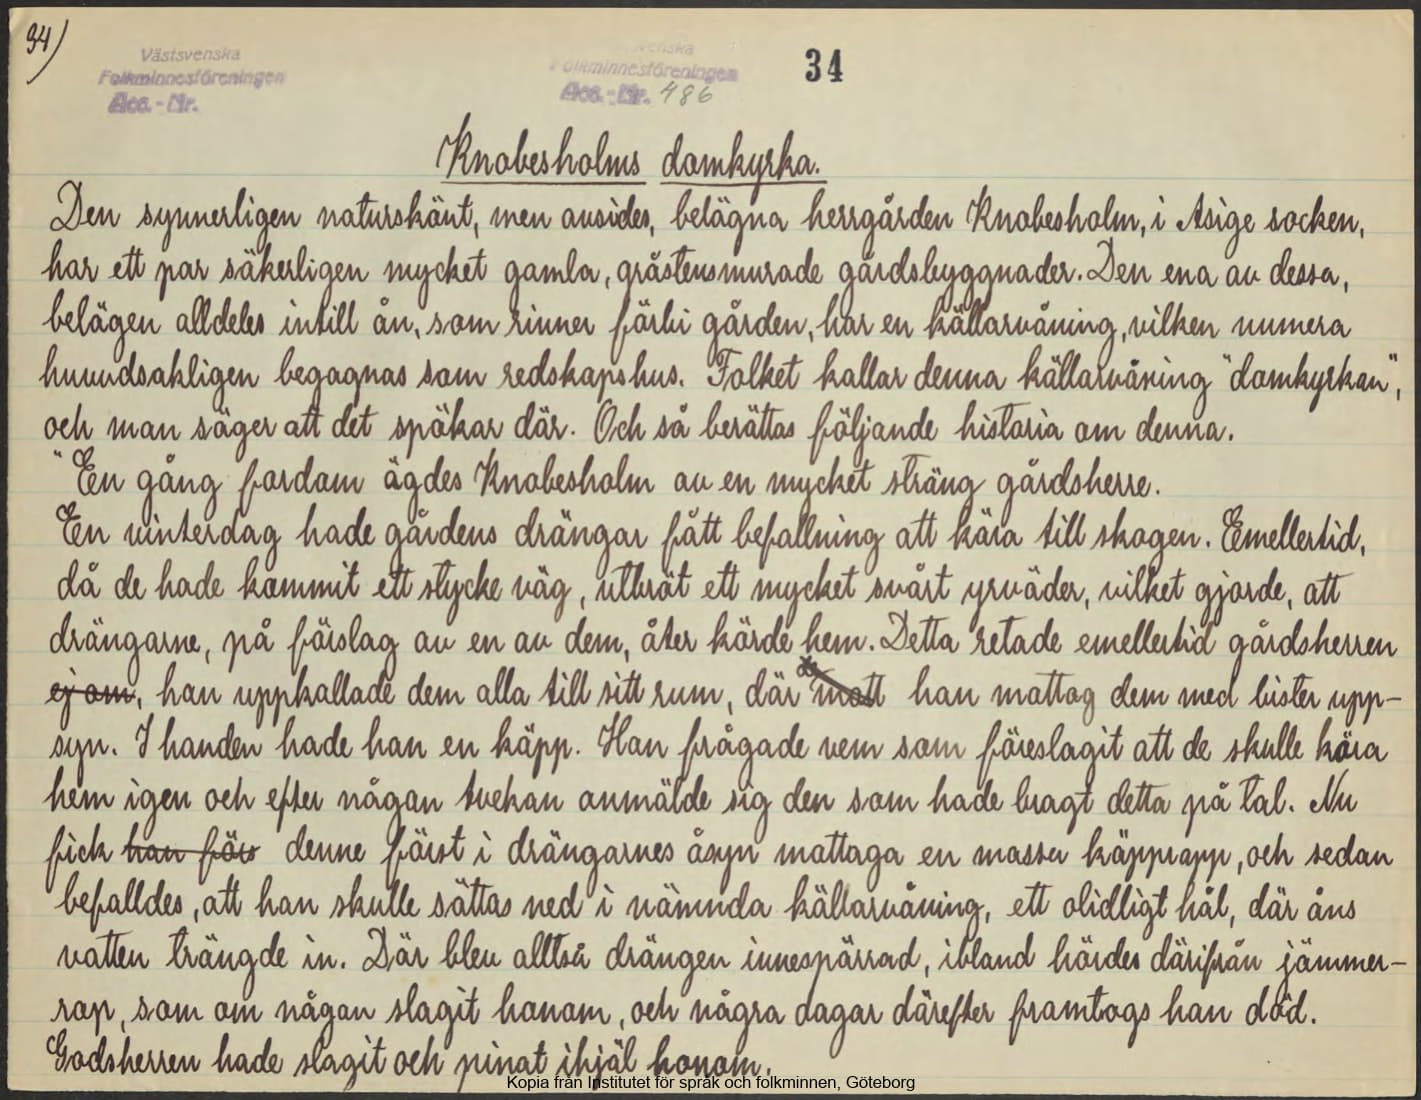 34)
Västsvenska
Folkminnesföreningen
Acc.-Nr.
Folkminnesföreningen
Acc.-Nr. 486
34
Knobesholms domkyrka.
Den synnerligen naturskönt, men avsides, belägna herrgården Knobesholm, i Asige socken,
har ett par säkerligen mycket gamla, gråstensmurade gårdsbyggnader. Den ena av dessa,
belägen alldeles intill ån, som rinner förbi gården, har en källarvåning, vilken numera
huvudsakligen begagnas som redskapshus. Folket kallar denna källarvåning "domkyrkan",
och man säger att det spökar där. Och så berättas följande historia om denna.
"En gång fordom ägdes Knobesholm av en mycket sträng gårdsherre.
En vinterdag hade gårdens drängar fått befallning att köra till skogen. Emellertid,
då de hade kommit ett stycke väg, utbröt ett mycket svårt yrväder, vilket gjorde, att
drängarne, på förslag av en av dem, åter körde hem. Detta retade emellertid gårdsherren
ej om, han uppkallade dem alla till sitt rum, där mott han mottog dem med bister upp-
syn. I handen hade han en käpp. Han frågade vem som föreslagit att de skulle köra
hem igen och efter någon tvekan anmälde sig den som hade bragt detta på tal. Nu
fick han förs denne först i drängarnes åsyn mottaga en massa käpprapp, och sedan
befalldes, att han skulle sättas ned i nämnda källarvåning, ett olidligt hål, där åns
vatten trängde in. Där blev alltså drängen innespärrad, ibland hördes därifrån jämmer-
rop, som om någon slagit honom, och några dagar därefter framtogs han död.
Godsherren hade slagit och pinat ihjäl honom.
Kopia från Institutet för språk och folkminnen, Göteborg